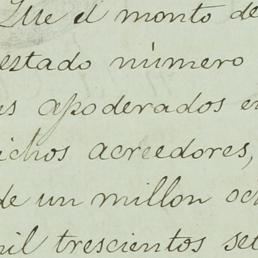 Que el monto de
estado número
apoderados en
ichos acreedores,
de un millon oc
mil trescientos set